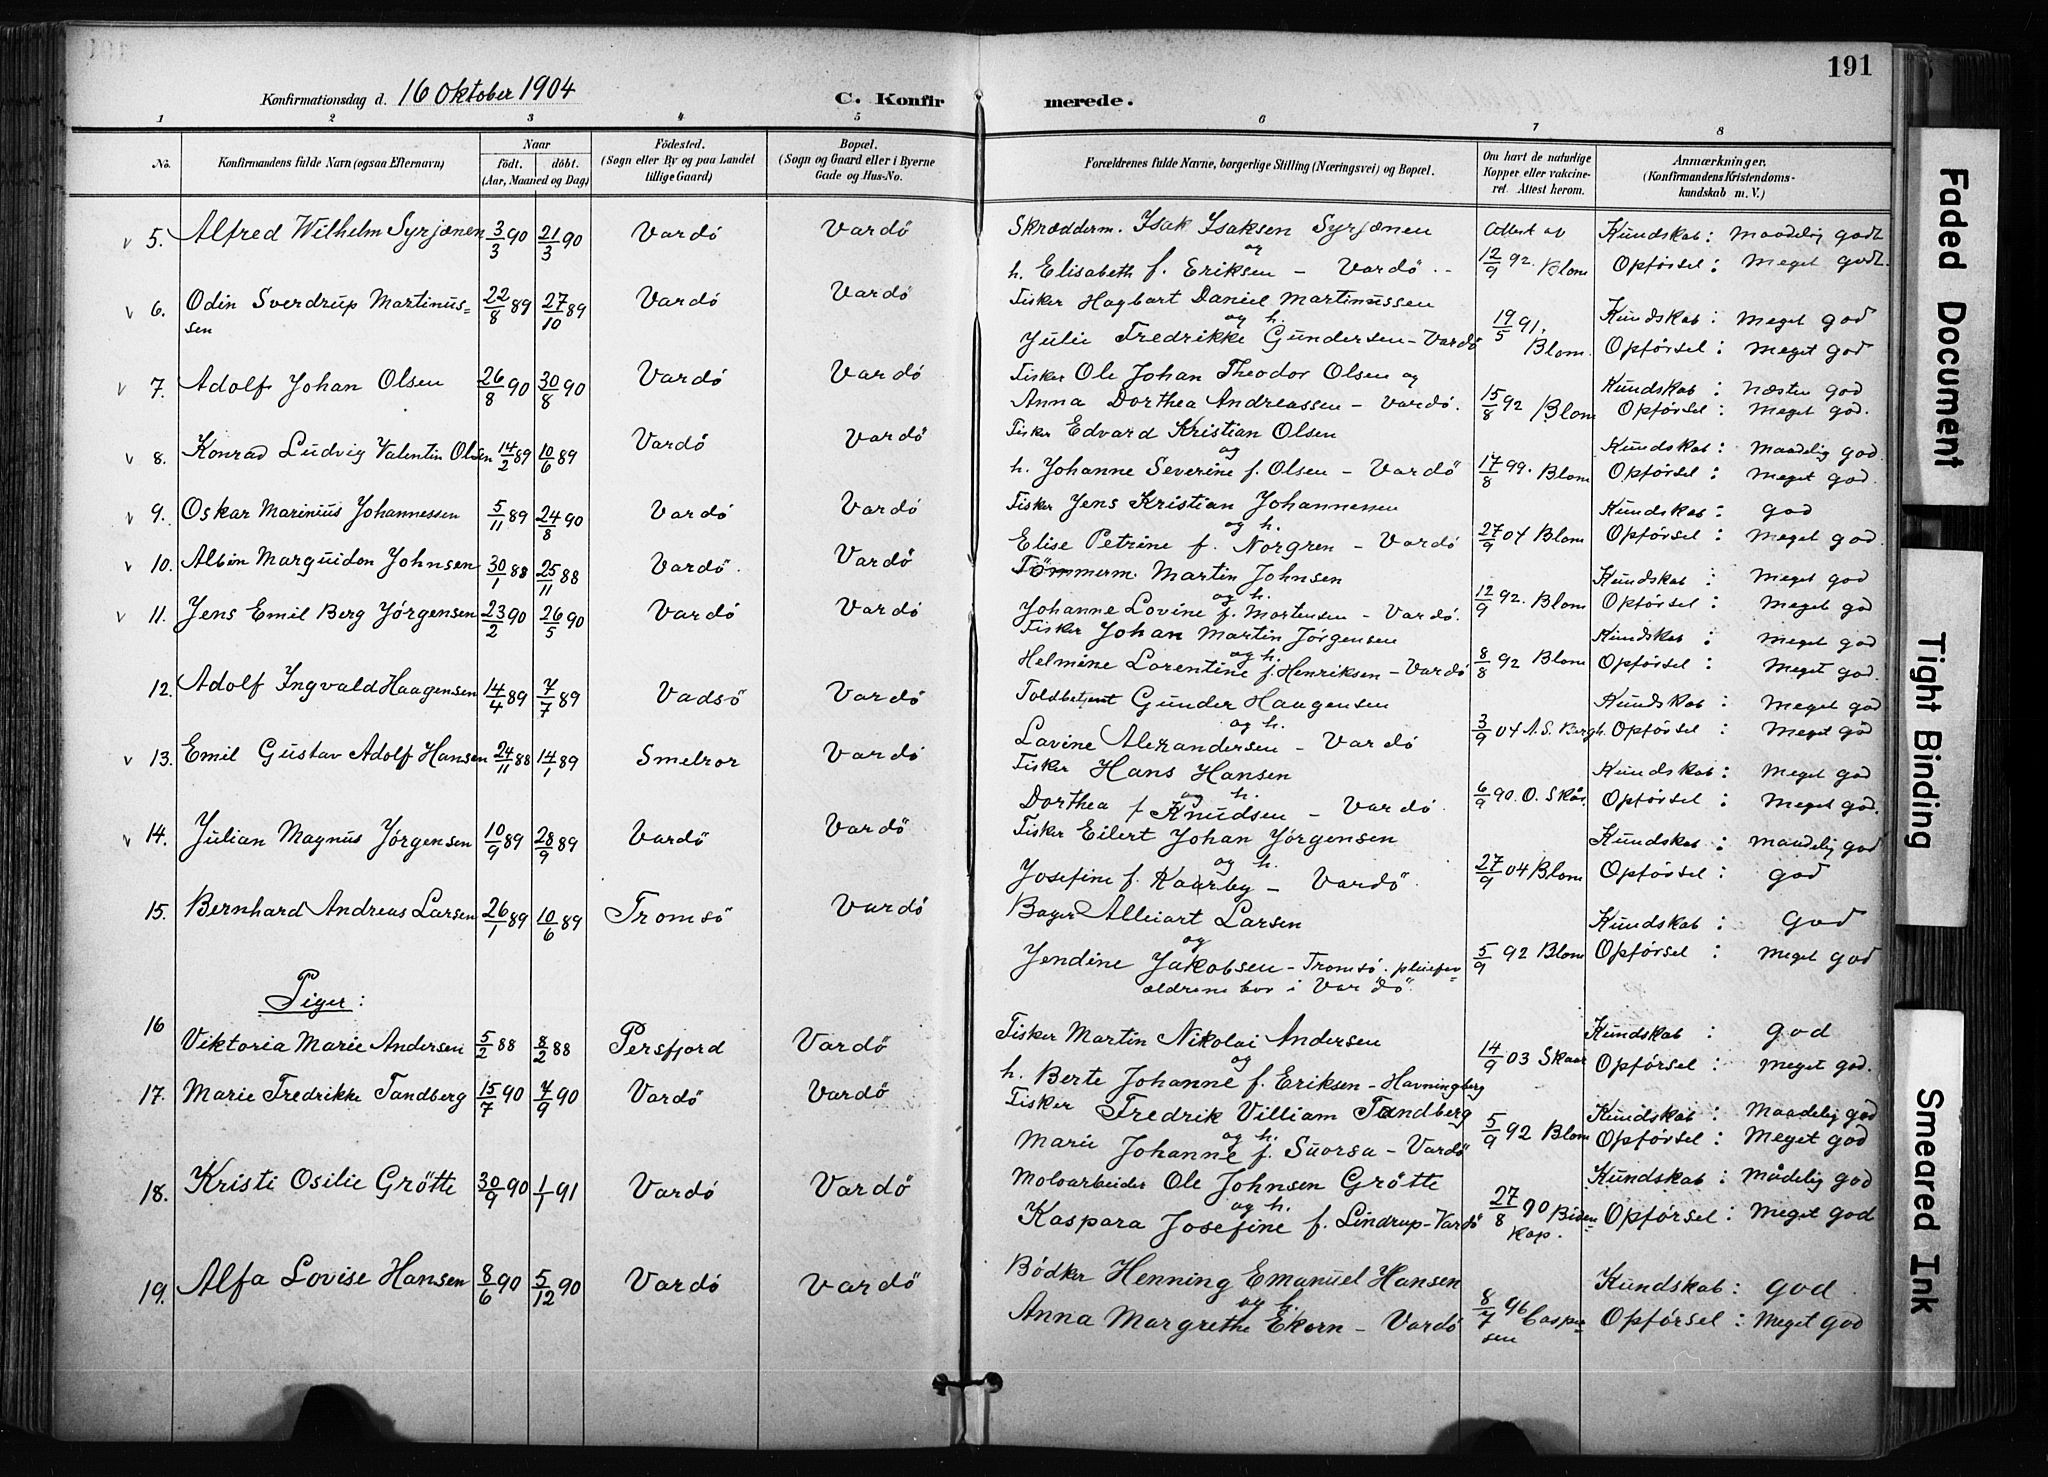 191
Konfirmationsdag d. 16 Oktober 1904 C. Konfirmerede.
1 2 3 4 5 6 7 8
No. Konfirmandens fulde Navn (ogsaa Efternavn) Naar født. døbt. (Aar, Maaned og Dag) Fødested. (Sogn eller By og paa Landet tillige Gaard) Bopæl. (Sogn og Gaard eller i Byerne Gade og Hus-No. Forældrenes fulde Navne, borgerlige Stilling (Næringsvei) og Bopæl. Om havt de naturlige Kopper eller vakcineret. Attest herom. Anmærkninger. (Konfirmandens Kristendomskundskab m. V.)
5. Alfred Wilhelm Syrjænen 3/3 90 21/3 90 Vardö Vardö Skrædderm. Isak Isaksen Syrjænen Attest av Kundskab: Maadelig godt
og
h. Elisabeth f. Eriksen – Vardö 12/9 92. Blom Opförsel: Meget godt.
6. Odin Sverdrup Martinus= 22/8 89 27/10 89 Vardö Vardö Fisker Hagbart Daniel Martinussen Kundskab: Meget god
sen og h.
Julie Fredrikke Gundersen – Vardö 19/5 91. Blom. Opförsel: Meget god
7. Adolf Johan Olsen 26/8 90 30/8 90 Vardö Vardö Fisker Ole Johan Theodor Olsen og Kundskab: Næsten god
Anna Dorthea Andreassen – Vardö. 15/8 92 Blom Opförsel: Meget god.
8. Konrad Ludvig Valentin Olsen 14/2 89 10/6 89 Vardö Vardö Fisker Edvard Kristian Olsen Kundskab: Maadelig god.
og
h. Johanne Severine f. Olsen – Vardö 17/8 99. Blom Opförsel: Meget god.
9. Oskar Marinius Johannessen 5/11 89 24/8 90 Vardö Vardö Fisker Jens Kristian Johannessen Kundskab: god
og h.
Elise Petrine f. Norgren – Vardö 27/9 04 Blom Opförsel: Meget god.
10. Albin Marguidon Johnsen 30/1 88 25/11 88 Vardö. Vardö Tömmerm. Martin Johnsen Kundskab: Meget god
og h.
Johanne Lovine f. Mortensen – Vardö. 12/9 92. Blom Opförsel: Meget god
11. Jens Emil Berg Jörgensen 23/2 90 26/5 90 Vardö Vardö Fisker Johan Martin Jörgensen Kundskab: Meget god
og h.
Helmine Lorentine f. Henriksen – Vardö 8/8 92 Blom Opförsel: Meget god.
12. Adolf Ingvald Haagensen 14/4 89 7/7 89 Vadsö Vardö Toldbetjent Gunder Haagensen Kundskab: Meget god
og h.
Lovine Alexandersen – Vardö 3/9 04 A. S. Bergh. Opförsel: Meget god
13. Emil Gustav Adolf Hansen 24/11 88 14/1 89 Smelror Vardö Fisker Hans Hansen Kundskab: Meget god
og h.
Dorthea f Knudsen – Vardö. 6/9 90. O. Skår. Opförsel: Meget god.
14. Julian Magnus Jörgensen 10/9 89 28/9 89 Vardö Vardö Fisker Eilert Johan Jörgensen Kundskab: Maadelig god
og h.
Josefine f. Kaarby – Vardö. 27/9 04 Blom Opförsel: god
15. Bernhard Andreas Larsen 26/1 89 10/6 89 Tromsö Vardö Bager Larsen Kundskab: God
og
Jendine Jakobsen – Tromsö. pleiefor= 5/9 92 Blom Opförsel: Meget god
ældrene bor i Vardö.
Piger:
16 Viktoria Marie Andersen 5/2 88 8/2 88 Persfjord Vardö Fisker Martin Nikolai Andersen Kundskab: god
og
h. Berte Johanne f. Eriksen – Havningberg 14/9 03 Skaar Opförsel: Meget god.
17. Marie Fredrikke Tandberg 15/7 90 7/9 90 Vardö Vardö Fisker Fredrik Villiam Tandberg Kundskab: Maadelig god
og h.
Marie Johanne f. Suorsa – Vardö 5/9 92 Blom Opförsel: Meget god
18. Kristi Osilie Grötte 30/9 90 1/1 91 Vardö Vardö Moloarbeider Ole Johnsen Grötte Kundskab: Mådelig god
og h.
Kaspara Josefine f. Lindrup – Vardö 27/8 90 Biden= Opförsel: Meget god
kap.
19. Alfa Lovise Hansen 8/6 90 5/12 90 Vardö Vardö Bödker Henning Emanuel Hansen Kundskab: god.
og h.
Anna Margrethe Ekorn – Vardö 8/7 96 Casper= Opförsel: Meget god
sen
Faded Document
Tight Binding
Smeared Ink